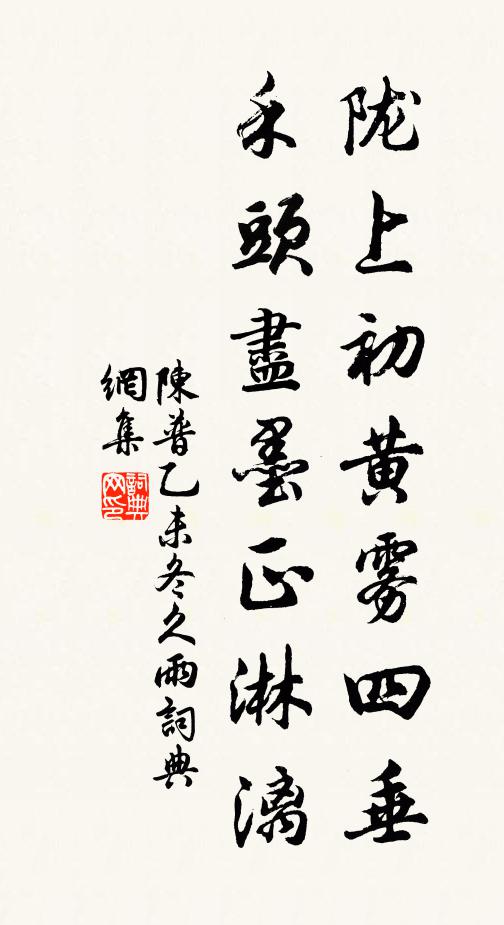 陇上初黄雾四垂
禾頭盡墨正淋漓
陳普乙未冬久雨詞典
網集
詞典网印